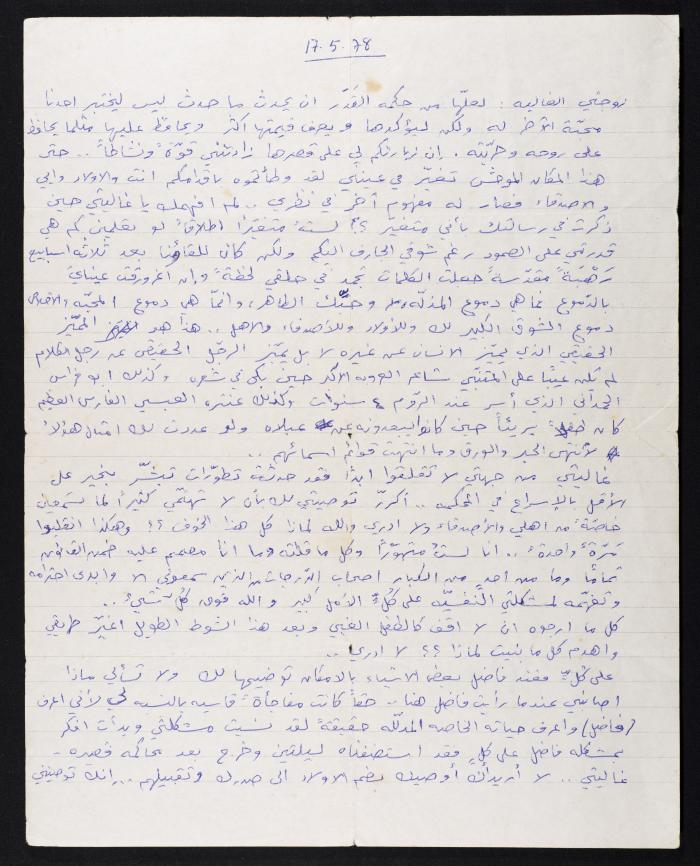 17.5.78
زوجتي الغاليه : لعلّها من حكمة القَدَر ان يحدث ما حدث ليس ليختبر احدنا
محبّة الآخر له ولكن ليؤكدها و يعرف قيمتها اكثر ويحافظ عليها مثلما يحافظ
على روحه وحرّيّته . إن زيارتكم لي على قصرها زادتني قوّةً ونشاطاً .. حتى
هذا المكان الموحش تغيّر في عينيّ لقد وطأتموه باقدامكم انت والاولاد وابي
والاصدقاء فصار له مفهوم آخر في نظري .. لم افهمك يا غاليتي حين
ذكرت في رسالتك بأني متغيّر ؟! لستُ متغيّرًا اطلاقاً لو تعلمين كم هي
قدرتي على الصمود رغم شوقي الجارف اليكم ولكن كان للقائنا بعد ثلاثة اسابيع
رَهْبَةً مقدّسةً جعلت الكلمات تجمد في حلقي لحظةً وإن اغرورقت عيناي
بالدّموع فما هي دموع المذلّه وحبُّك الطاهر، وانّما هي دموع المحبّه
دموع الشوق الكبير لك وللأولاد وللأصدقاء والاهل .. هذا هو المميّز
الحقيقي الذي يميّز الانسان عن غيره لا بل يميّز الرجّل الحقيقي عن رجل الكلام
لم يكن عيبًا على المتنبّي شاعر العرب الاكبر حين بكى في شعره وكذلك ابو فراس
الحمداني الذي أسر عند الرّوم ٤ سنوات وكذلك عنتره العبسي الفارس العظيم
كان بريئاً حين كانوا يبعدونه عن عبلاه ولو عددت لك امثال هؤلاء
لأنتهى الحبر والورق وما انتهت قوائم اسمائهم ..
غاليتي من جهتي لا تقلقوا ابدًا فقد حدثت تطوّرات تبشّر بخير على
الأقل بالإسراع في المحكمه .. أكررّ توصيتي لك بأن لا تهتمّي كثيراً لما تسمعين
خاصّةً من اهلي والأصدقاء ولا ادري والله لماذا كل هذا الخوف ؟! وهكذا انقلبوا
مَرّةً واحدةً .. أنا لستُ متهوّرًا وكل ما قلته وما انا مصمم عليه ضمن القانون
تمامًا وما من احدٍ من الكبار اصحاب الدّرجات الذين سمعوني الا وابدى احترامه
وتفهّمه لمشكلتي النّفسيّه على كُلٍّ الأمل كبير والله فوق كُلّ شيءٍ ..
كل ما ارجوه ان لا اقف كالطفل الغبي وبعد هذا الشوط الطويل اغيّر طريقي
واهدم كل ما بنيت لماذا ؟؟ لا ادري ..
على كُلٍّ فعند فاضل بعض الاشياء بالامكان توضيحها لك ولا تسألي ماذا
اصابني عندما رأيت فاضل هنا .. حقاً كانت مفاجأةً قاسيه بالنسبه لي لأني اعرف
(فاضل) واعرف حياته الخاصه المدلّله حقيقةً لقد نسيت مشكلتي وبدأت افكر
بمشكلة فاضل على كلٍ فقد استضفناه ليلتين وخرج بعد محاكمة قصيره -
غاليتي .. لا أريد أن أوصيك بضم الاولاد الى صدرك وتقبيلهم .. إنك توصينني